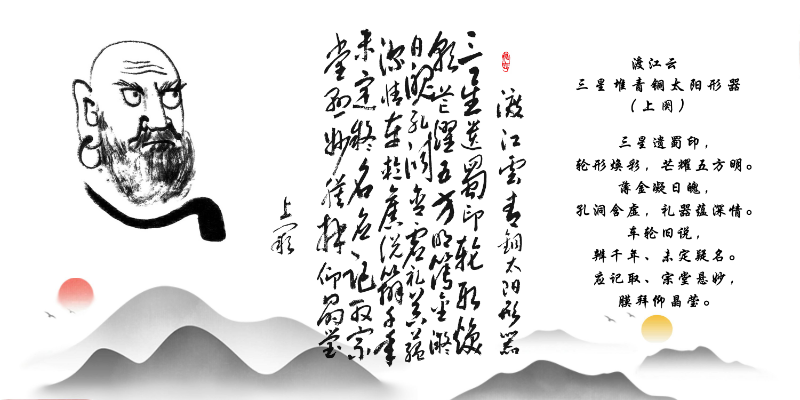 渡江雲青铜太阳形器
三星遗蜀印轮形焕
彩芒耀五方明薄金凝
日魄孔洞含虚礼器蕴
深情车轮旧说辨千年
未定疑名应记取宗
堂悬妙膜拜仰晶莹
上阕
渡江云
三星堆青铜太阳形器
(上阕)
三星遗蜀印，
轮形焕彩，芒耀五方明。
薄金凝日魄，
孔洞含虚，礼器蕴深情。
车轮旧说，
辨千年、未定疑名。
应记取、宗堂悬妙，
膜拜仰晶莹。